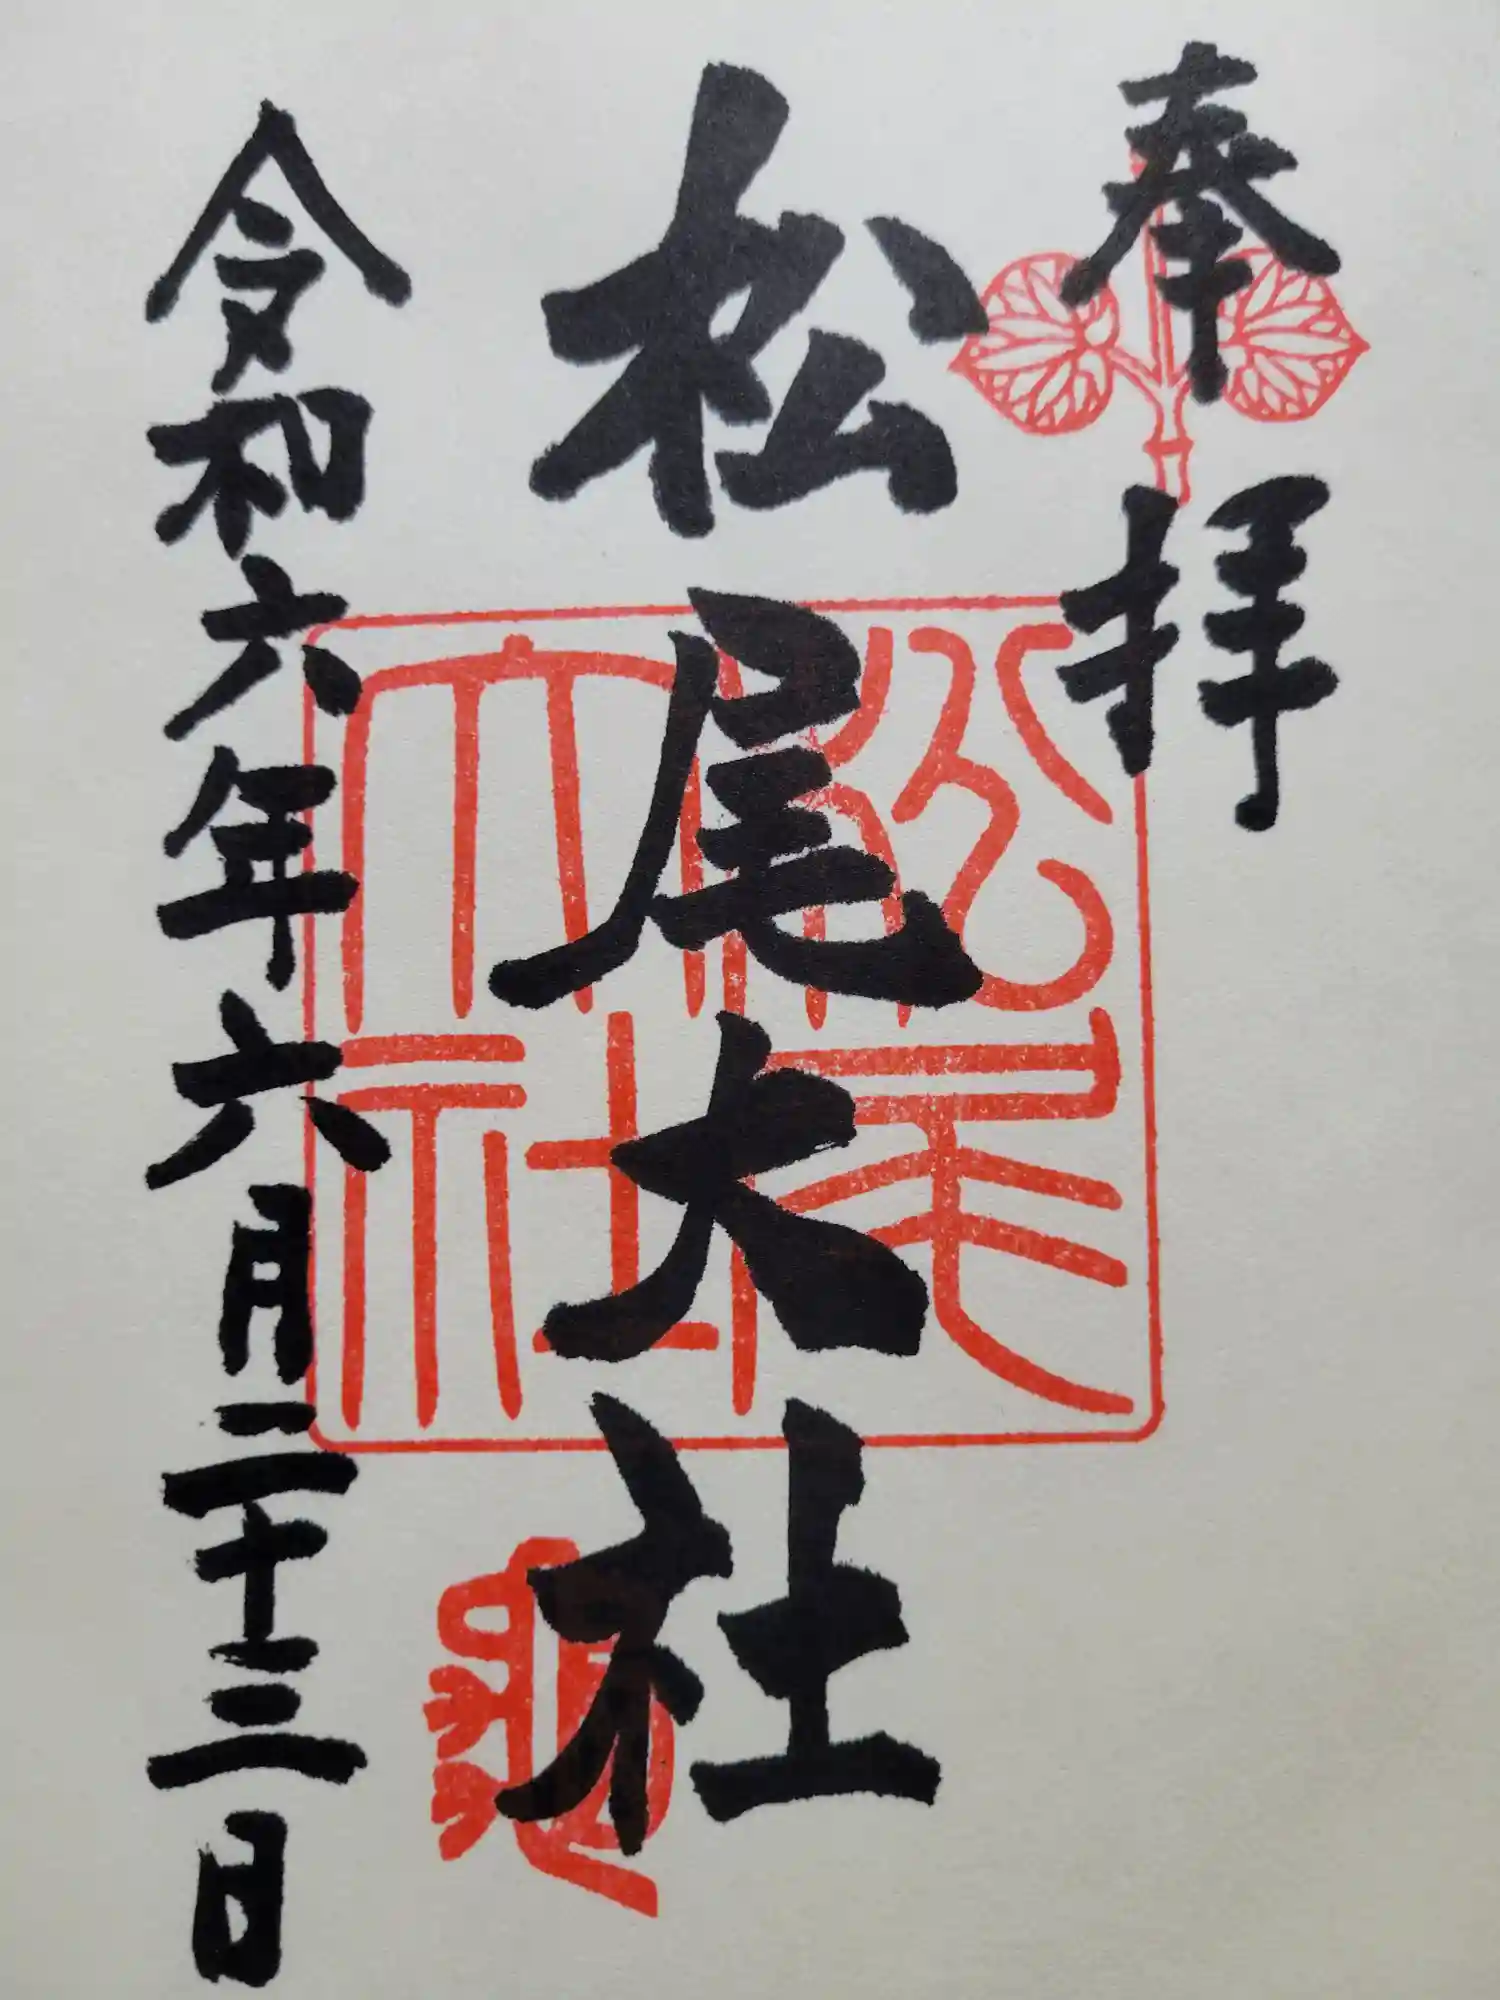 奉拝
松尾大社
松尾大社
亀
令和六年六月二十三日